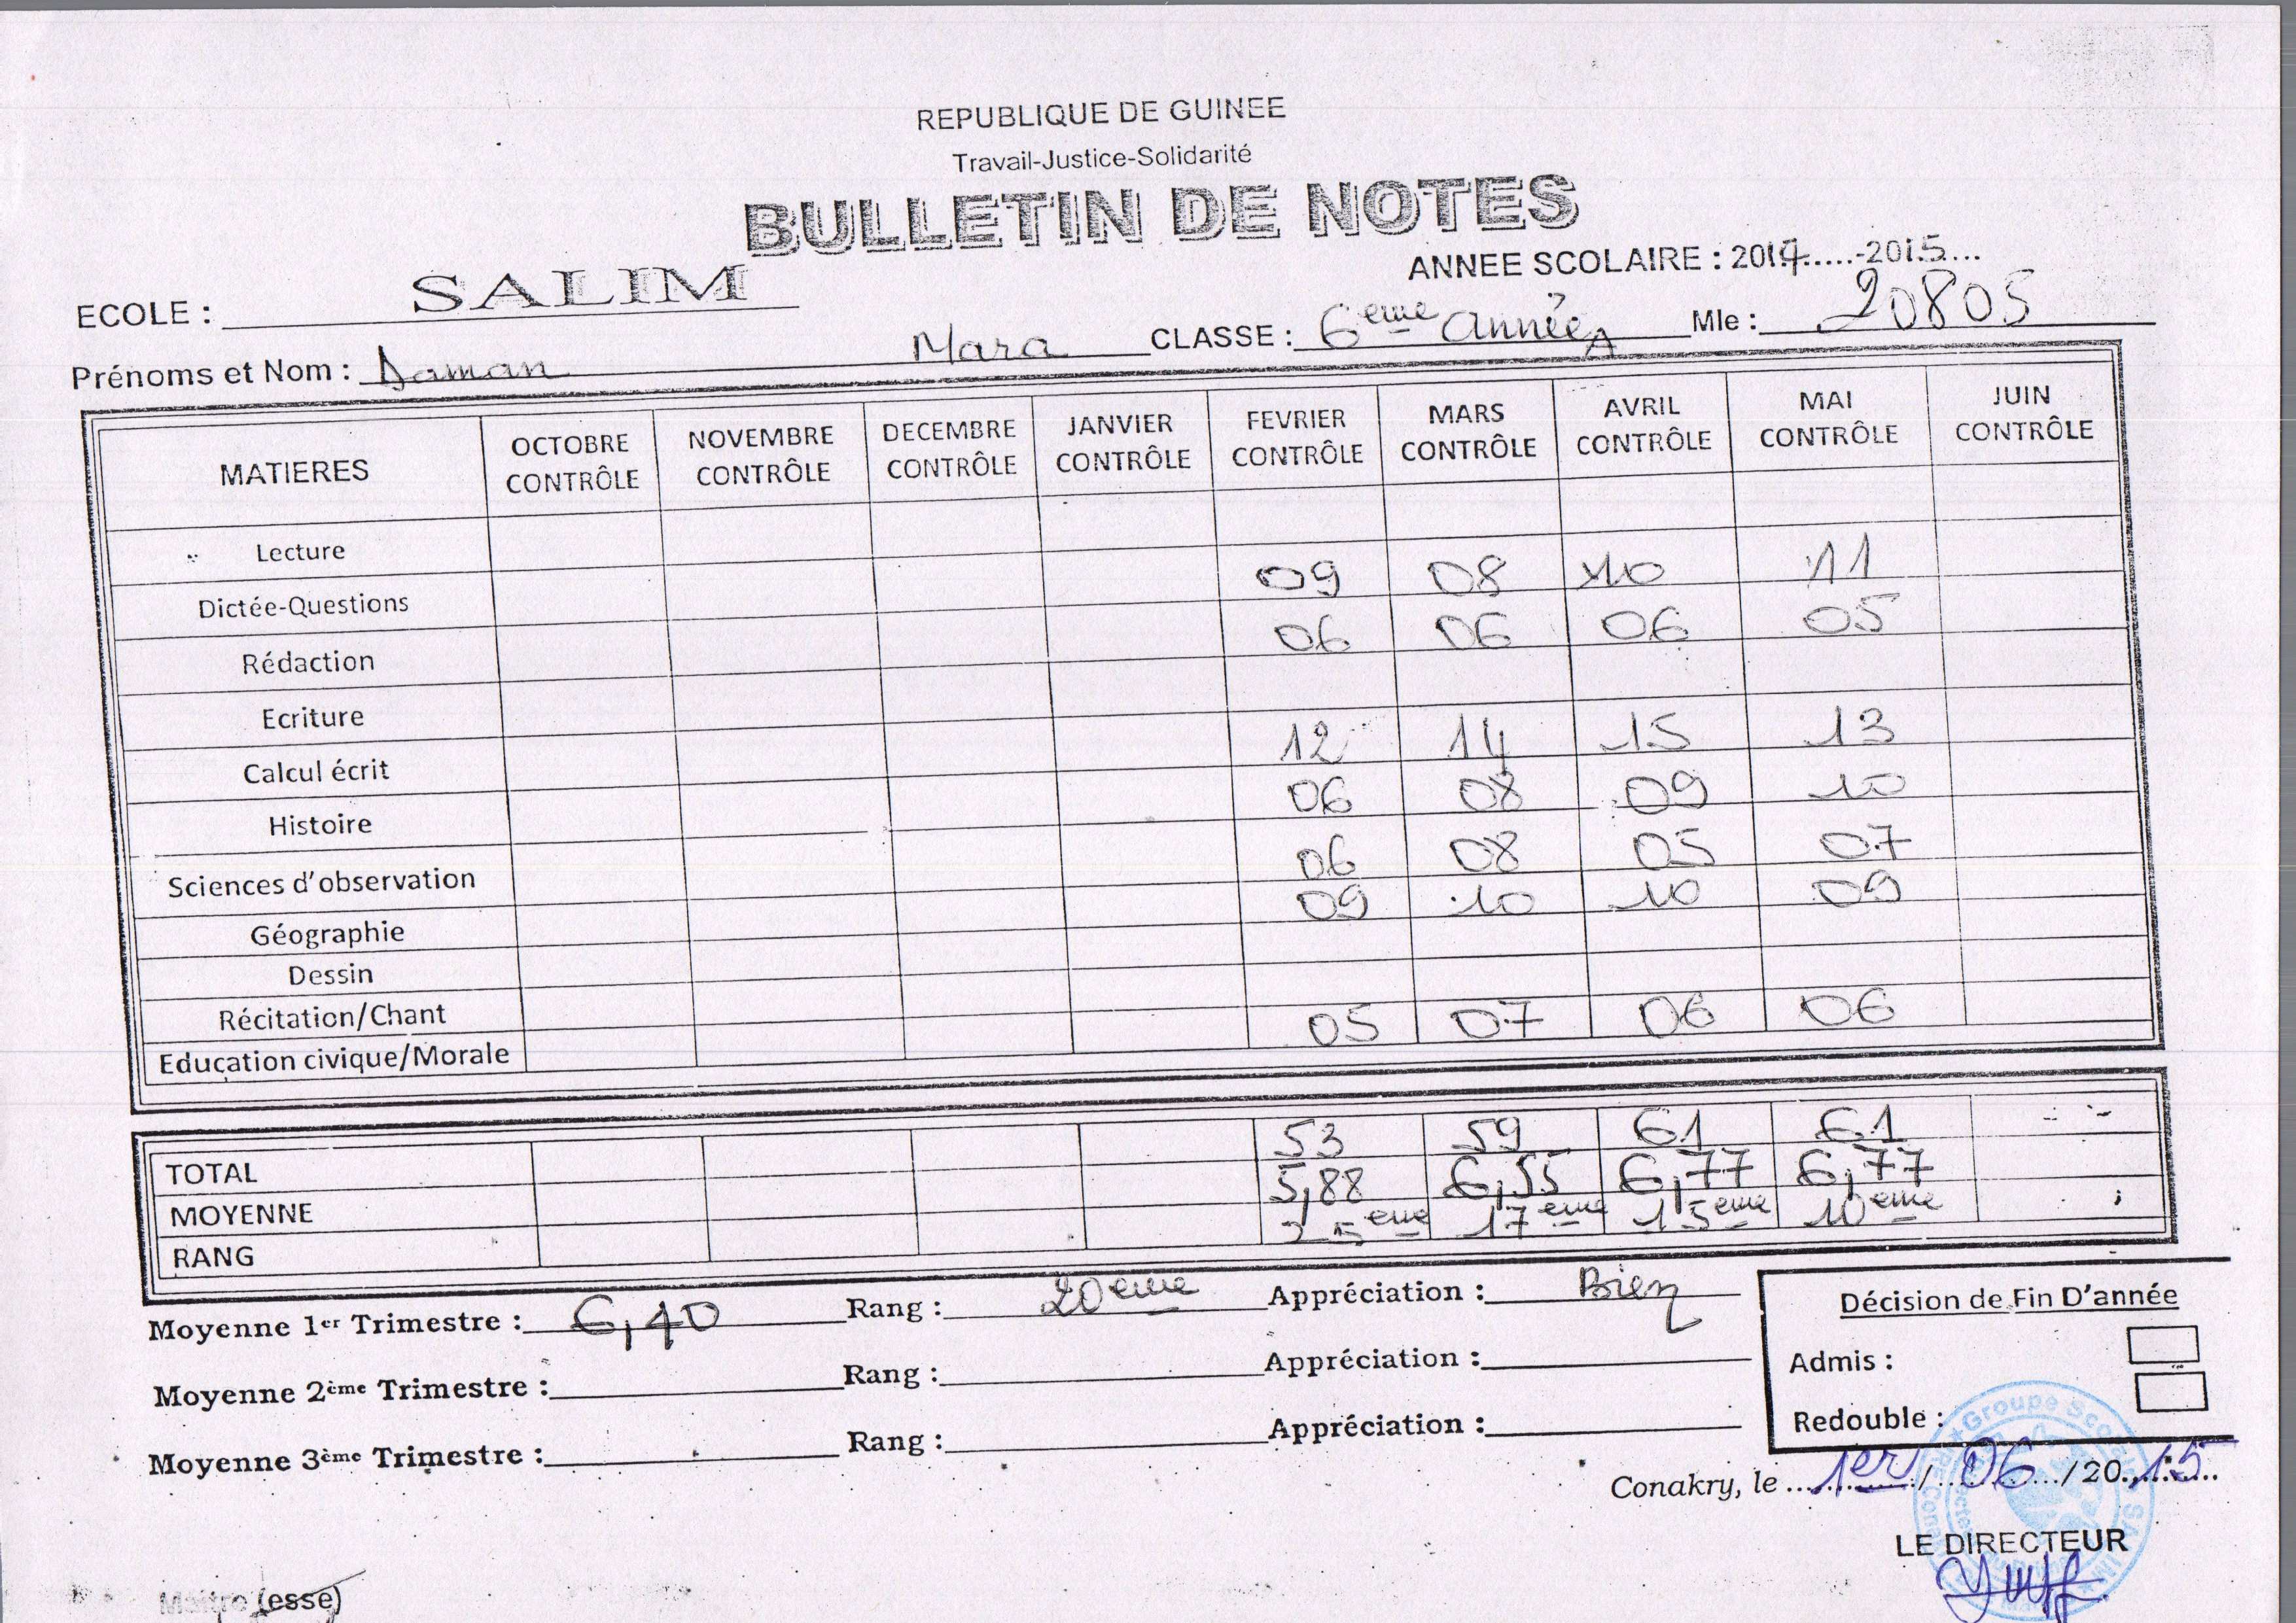 REPUBLIQUE DE GUINEE
Travail-Justice-Solidarité
BULLETIN DE NOTES
ANNEE SCOLAIRE : 2014.....-2015....
ECOLE : SALIM
Prénoms et Nom : Daman Mara CLASSE : 6eme année A Mle : 20805
MATIERES OCTOBRE CONTRÔLE NOVEMBRE CONTRÔLE DECEMBRE CONTRÔLE JANVIER CONTRÔLE FEVRIER CONTRÔLE MARS CONTRÔLE AVRIL CONTRÔLE MAI CONTRÔLE JUIN CONTRÔLE
Lecture
Dictée-Questions 09 08 10 11
Rédaction 06 06 06 05
Ecriture
Calcul écrit 12 14 15 13
Histoire 06 08 09 10
Sciences d'observation 06 08 05 07
Géographie 09 10 10 09
Dessin
Récitation/Chant
Education civique/Morale 05 07 06 06
TOTAL 53 59 61 61
MOYENNE 5,88 6,55 6,77 6,77
RANG 25eme 17eme 15eme 10eme
Moyenne 1er Trimestre : 6,40 Rang : 20eme Appréciation : Bien
Moyenne 2ème Trimestre : Rang : Appréciation :
Moyenne 3ème Trimestre : Rang : Appréciation :
Décision de Fin D'année
Admis :
Redouble :
Conakry, le 1er / 06 / 20.15
LE DIRECTEUR
Groupe Scolaire SALIM
Maitre (esse)